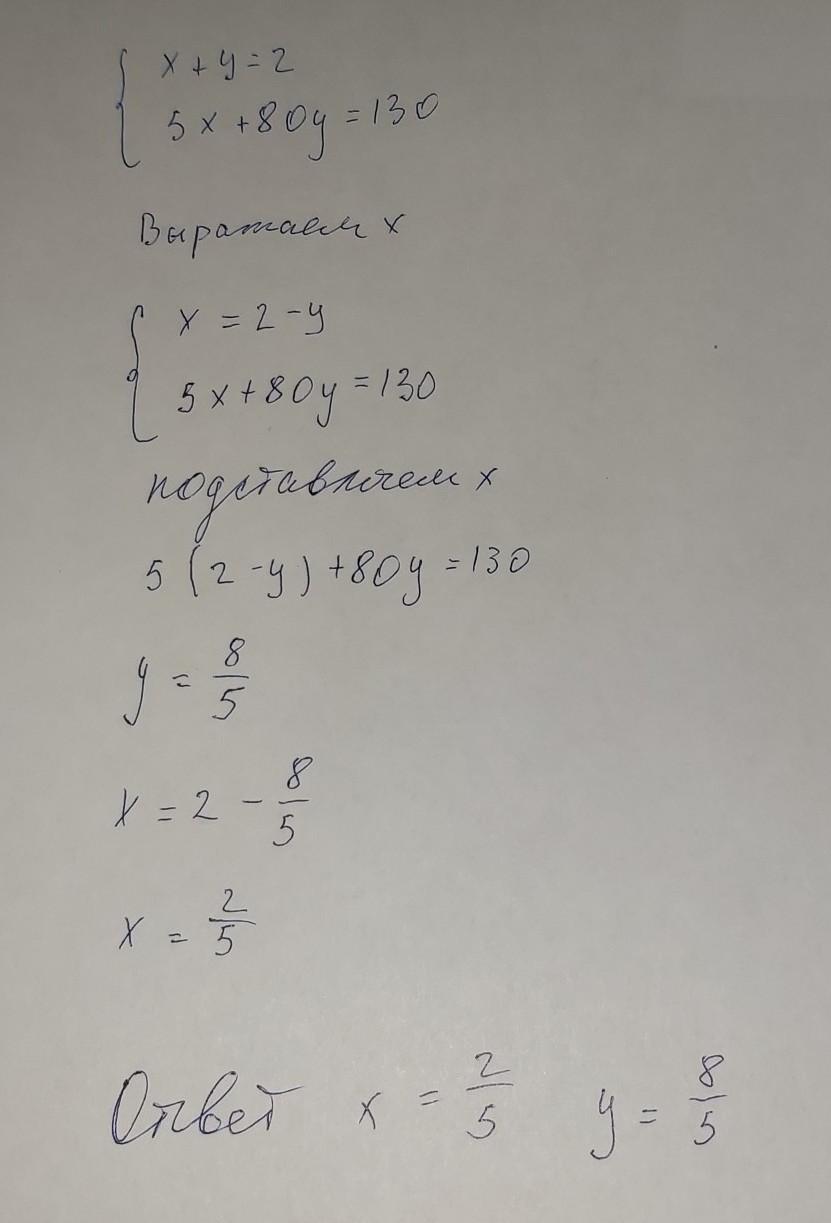 x + y = 2
5x + 80y = 130
Выражаем x
x = 2 - y
5x + 80y = 130
подставляем x
5 (2 - y) + 80y = 130
y = 8/5
x = 2 - 8/5
x = 2/5
Ответ x = 2/5 y = 8/5